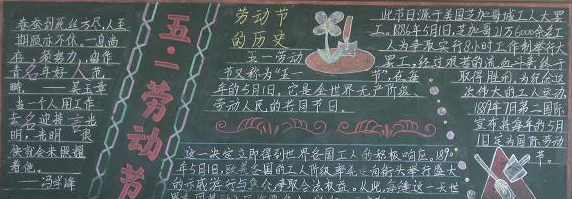 春蚕到死丝方尽,人至
期颐亦不休。一息尚
存须努力,留作
青年好人范
畴。——吴玉章
当一个人用工作
去迎接光
明,光明很
快就会来照耀
着他。
——冯学峰
名言
五·一劳动节
劳动节
的历史
五一劳动
节又称为"五一
节",在每
年的5月1日。它是全世界无产阶级、
劳动人民的共同节日。
此节日源于美国芝加哥城工人大罢
工。1886年5月1日,芝加哥21万6000余名工
人为争取实行8小时工作制举行大
罢工,经过艰苦的流血斗争终于
取得胜利。为纪念这
次伟大的工人运动,
1889年7月第二国际
宣布将每年的5月
1日定为国际劳动
节。
这一决定立即得到世界各国工人的积极响应。1890
年5月1日,欧美各国的工人阶级率先走向街头举行盛大
的示威游行与集会,争取合法权益。从此,每逢这一天世